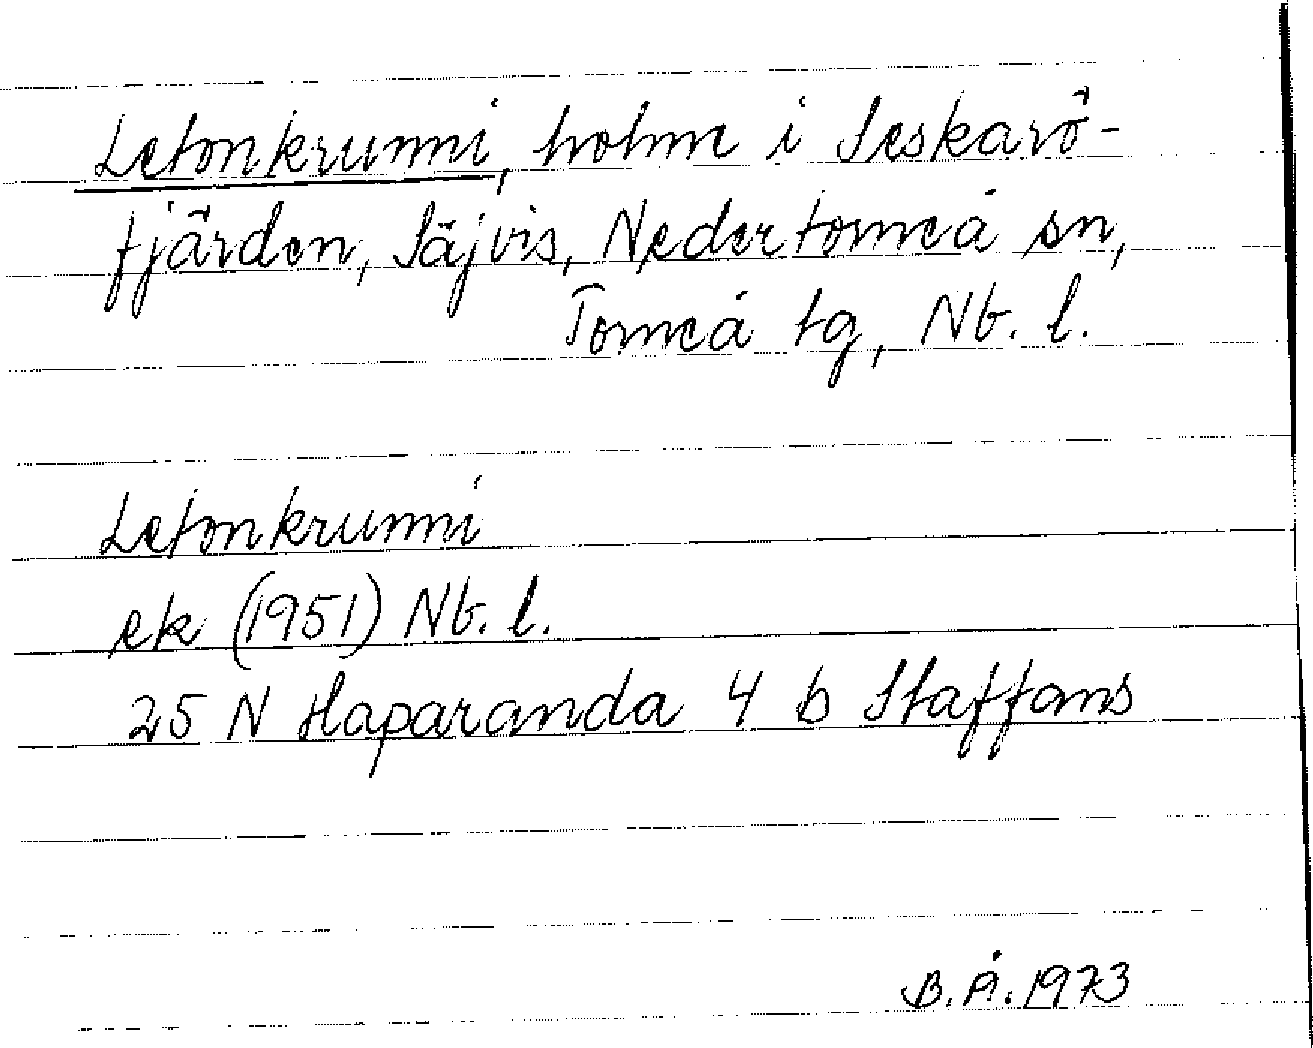 Letonkrunni, holme i Seskarö-
fjärden, Säjvis, Nedertorneå sn,
Torneå tg, Nb. l.
Letonkrunni
ek (1951) Nb. l.
25 N Haparanda 4 b Staffans
B.Å. 1973